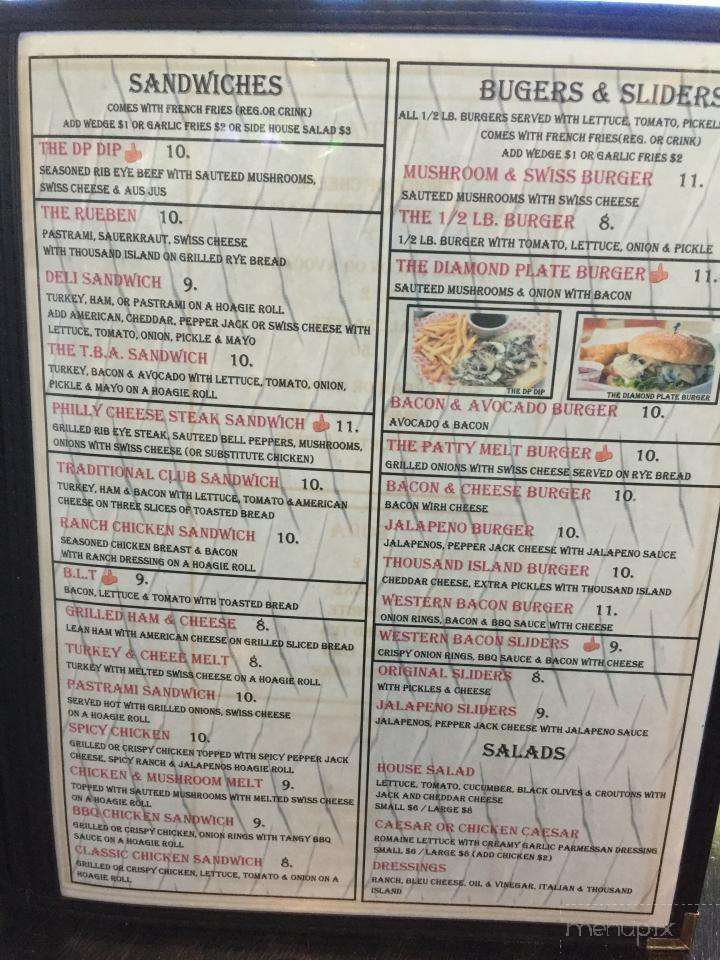 SANDWICHES
COMES WITH FRENCH FRIES (REG.OR CRINK)
ADD WEDGE $1 OR GARLIC FRIES $2 OR SIDE HOUSE SALAD $3
THE DP DIP 10.
SEASONED RIB EYE BEEF WITH SAUTEED MUSHROOMS,
SWISS CHEESE & AUS JUS
THE RUEBEN 10.
PASTRAMI, SAUERKRAUT, SWISS CHEESE
WITH THOUSAND ISLAND ON GRILLED RYE BREAD
DELI SANDWICH 9.
TURKEY, HAM, OR PASTRAMI ON A HOAGIE ROLL
ADD AMERICAN, CHEDDAR, PEPPER JACK OR SWISS CHEESE WITH
LETTUCE, TOMATO, ONION, PICKLE & MAYO
THE T.B.A. SANDWICH 10.
TURKEY, BACON & AVOCADO WITH LETTUCE, TOMATO, ONION,
PICKLE & MAYO ON A HOAGIE ROLL
PHILLY CHEESE STEAK SANDWICH 11.
GRILLED RIB EYE STEAK, SAUTEED BELL PEPPERS, MUSHROOMS,
ONIONS WITH SWISS CHEESE (OR SUBSTITUTE CHICKEN)
TRADITIONAL CLUB SANDWICH 10.
TURKEY, HAM & BACON WITH LETTUCE, TOMATO &AMERICAN
CHEESE ON THREE SLICES OF TOASTED BREAD
RANCH CHICKEN SANDWICH 10.
SEASONED CHICKEN BREAST & BACON
WITH RANCH DRESSING ON A HOAGIE ROLL
B.L.T 9.
BACON, LETTUCE & TOMATO WITH TOASTED BREAD
GRILLED HAM & CHEESE 8.
LEAN HAM WITH AMERICAN CHEESE ON GRILLED SLICED BREAD
TURKEY & CHEEE MELT 8.
TURKEY WITH MELTED SWISS CHEESE ON A HOAGIE ROLL
PASTRAMI SANDWICH 10.
SERVED HOT WITH GRILLED ONIONS, SWISS CHEESE
ON A HOAGIE ROLL
SPICY CHICKEN 10.
GRILLED OR CRISPY CHICKEN TOPPED WITH SPICY PEPPER JACK
CHEESE, SPICY RANCH & JALAPENOS HOAGIE ROLL
CHICKEN & MUSHROOM MELT 9.
TOPPED WITH SAUTEED MUSHROOMS WITH MELTED SWISS CHEESE
ON A HOAGIE ROLL
BBQ CHICKEN SANDWICH 9.
GRILLED OR CRISPY CHICKEN, ONION RINGS WITH TANGY BBQ
SAUCE ON A HOAGIE ROLL
CLASSIC CHICKEN SANDWICH 8.
GRILLED OR CRISPY CHICKEN, LETTUCE, TOMATO & ONION ON A
HOAGIE ROLL
BUGERS & SLIDERS
ALL 1/2 LB. BURGERS SERVED WITH LETTUCE, TOMATO, PICKEL
COMES WITH FRENCH FRIES(REG. OR CRINK)
ADD WEDGE $1 OR GARLIC FRIES $2
MUSHROOM & SWISS BURGER 11.
SAUTEED MUSHROOMS WITH SWISS CHEESE
THE 1/2 LB. BURGER 8.
1/2 LB. BURGER WITH TOMATO, LETTUCE, ONION & PICKLE
THE DIAMOND PLATE BURGER 11.
SAUTEED MUSHROOMS & ONION WITH BACON
THE DP DIP
THE DIAMOND PLATE BURGER
BACON & AVOCADO BURGER 10.
AVOCADO & BACON
THE PATTY MELT BURGER 10.
GRILLED ONIONS WITH SWISS CHEESE SERVED ON RYE BREAD
BACON & CHEESE BURGER 10.
BACON WIRH CHEESE
JALAPENO BURGER 10.
JALAPENOS, PEPPER JACK CHEESE WITH JALAPENO SAUCE
THOUSAND ISLAND BURGER 10.
CHEDDAR CHEESE, EXTRA PICKLES WITH THOUSAND ISLAND
WESTERN BACON BURGER 11.
ONION RINGS, BACON & BBQ SAUCE WITH CHEESE
WESTERN BACON SLIDERS 9.
CRISPY ONION RINGS, BBQ SAUCE & BACON WITH CHEESE
ORIGINAL SLIDERS 8.
WITH PICKLES & CHEESE
JALAPENO SLIDERS 9.
JALAPENOS, PEPPER JACK CHEESE WITH JALAPENO SAUCE
SALADS
HOUSE SALAD
LETTUCE, TOMATO, CUCUMBER, BLACK OLIVES & CROUTONS WITH
JACK AND CHEDDAR CHEESE
SMALL $6 / LARGE $8
CAESAR OR CHICKEN CAESAR
ROMAINE LETTUCE WITH CREAMY GARLIC PARMESSAN DRESSING
SMALL $6 / LARGE $8 (ADD CHICKEN $2)
DRESSINGS
RANCH, BLEU CHEESE, OIL & VINEGAR, ITALIAN & THOUSAND
ISLAND
menupix